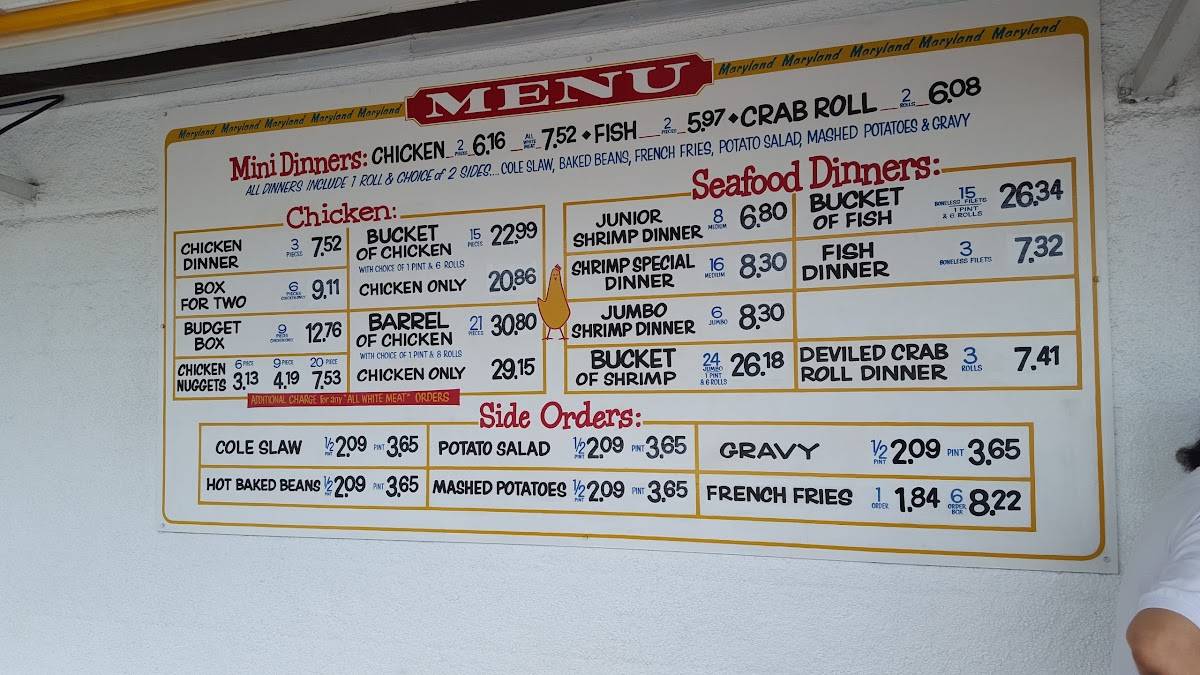 Maryland Maryland Maryland Maryland Maryland MENU Maryland Maryland Maryland Maryland Maryland
Mini Dinners: CHICKEN 2 PIECES 6.16 ALL WHITE MEAT 7.52 ♦ FISH 2 PIECES 5.97 ♦ CRAB ROLL 2 ROLLS 6.08
ALL DINNERS INCLUDE 1 ROLL & CHOICE of 2 SIDES... COLE SLAW, BAKED BEANS, FRENCH FRIES, POTATO SALAD, MASHED POTATOES & GRAVY
Chicken:
CHICKEN DINNER 3 PIECES 7.52
BOX FOR TWO 6 PIECES CHICKEN ONLY 9.11
BUDGET BOX 9 PIECES CHICKEN ONLY 12.76
CHICKEN NUGGETS 6 PIECE 3.13 9 PIECE 4.19 20 PIECE 7.53
BUCKET OF CHICKEN 15 PIECES 22.99
WITH CHOICE OF 1 PINT & 6 ROLLS
CHICKEN ONLY 20.86
BARREL OF CHICKEN 21 PIECES 30.80
WITH CHOICE OF 1 PINT & 8 ROLLS
CHICKEN ONLY 29.15
ADDITIONAL CHARGE for any "ALL WHITE MEAT" ORDERS
Seafood Dinners:
JUNIOR SHRIMP DINNER 8 MEDIUM 6.80
SHRIMP SPECIAL DINNER 16 MEDIUM 8.30
JUMBO SHRIMP DINNER 6 JUMBO 8.30
BUCKET OF SHRIMP 24 JUMBO 1 PINT & 6 ROLLS 26.18
BUCKET OF FISH 15 BONELESS FILETS 1 PINT & 6 ROLLS 26.34
FISH DINNER 3 BONELESS FILETS 7.32
DEVILED CRAB ROLL DINNER 3 ROLLS 7.41
Side Orders:
COLE SLAW ½ PINT 2.09 PINT 3.65
POTATO SALAD ½ PINT 2.09 PINT 3.65
GRAVY ½ PINT 2.09 PINT 3.65
HOT BAKED BEANS ½ PINT 2.09 PINT 3.65
MASHED POTATOES ½ PINT 2.09 PINT 3.65
FRENCH FRIES 1 ORDER 1.84 6 ORDER BOX 8.22